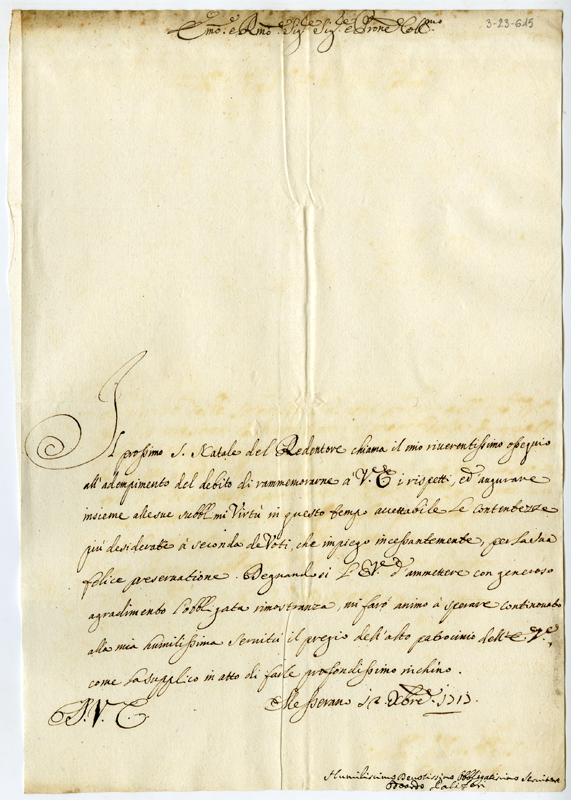 Emo. e Rmo. Sigre. Sigre. e Prone Collmo
3-23-615
Il prossimo S. Natale del Redentore chiama il mio riverentissimo ossequio
all'adempimento del debito di rammemorarne à V. E. i rispetti, ed'augurare
insieme alle sue subblimi Virtù in questo tempo accettabile le contentezze
più desiderate à seconda de Voti, che impiego incessantemente, per la sua
felice preservatione. Degnandosi l'E. V. d'ammettere con generoso
agradimento l'obbligata rimostranza, mi farò animo à sperare continovato
alla mia humilissima servitù il pregio dell'alto patrocinio dell'E. V.,
come la supplico in atto di farle profondissimo inchino.
Messerano 12 Xbre. 1713.
Humilissimo Devotissimo Obbligatissimo Servitore